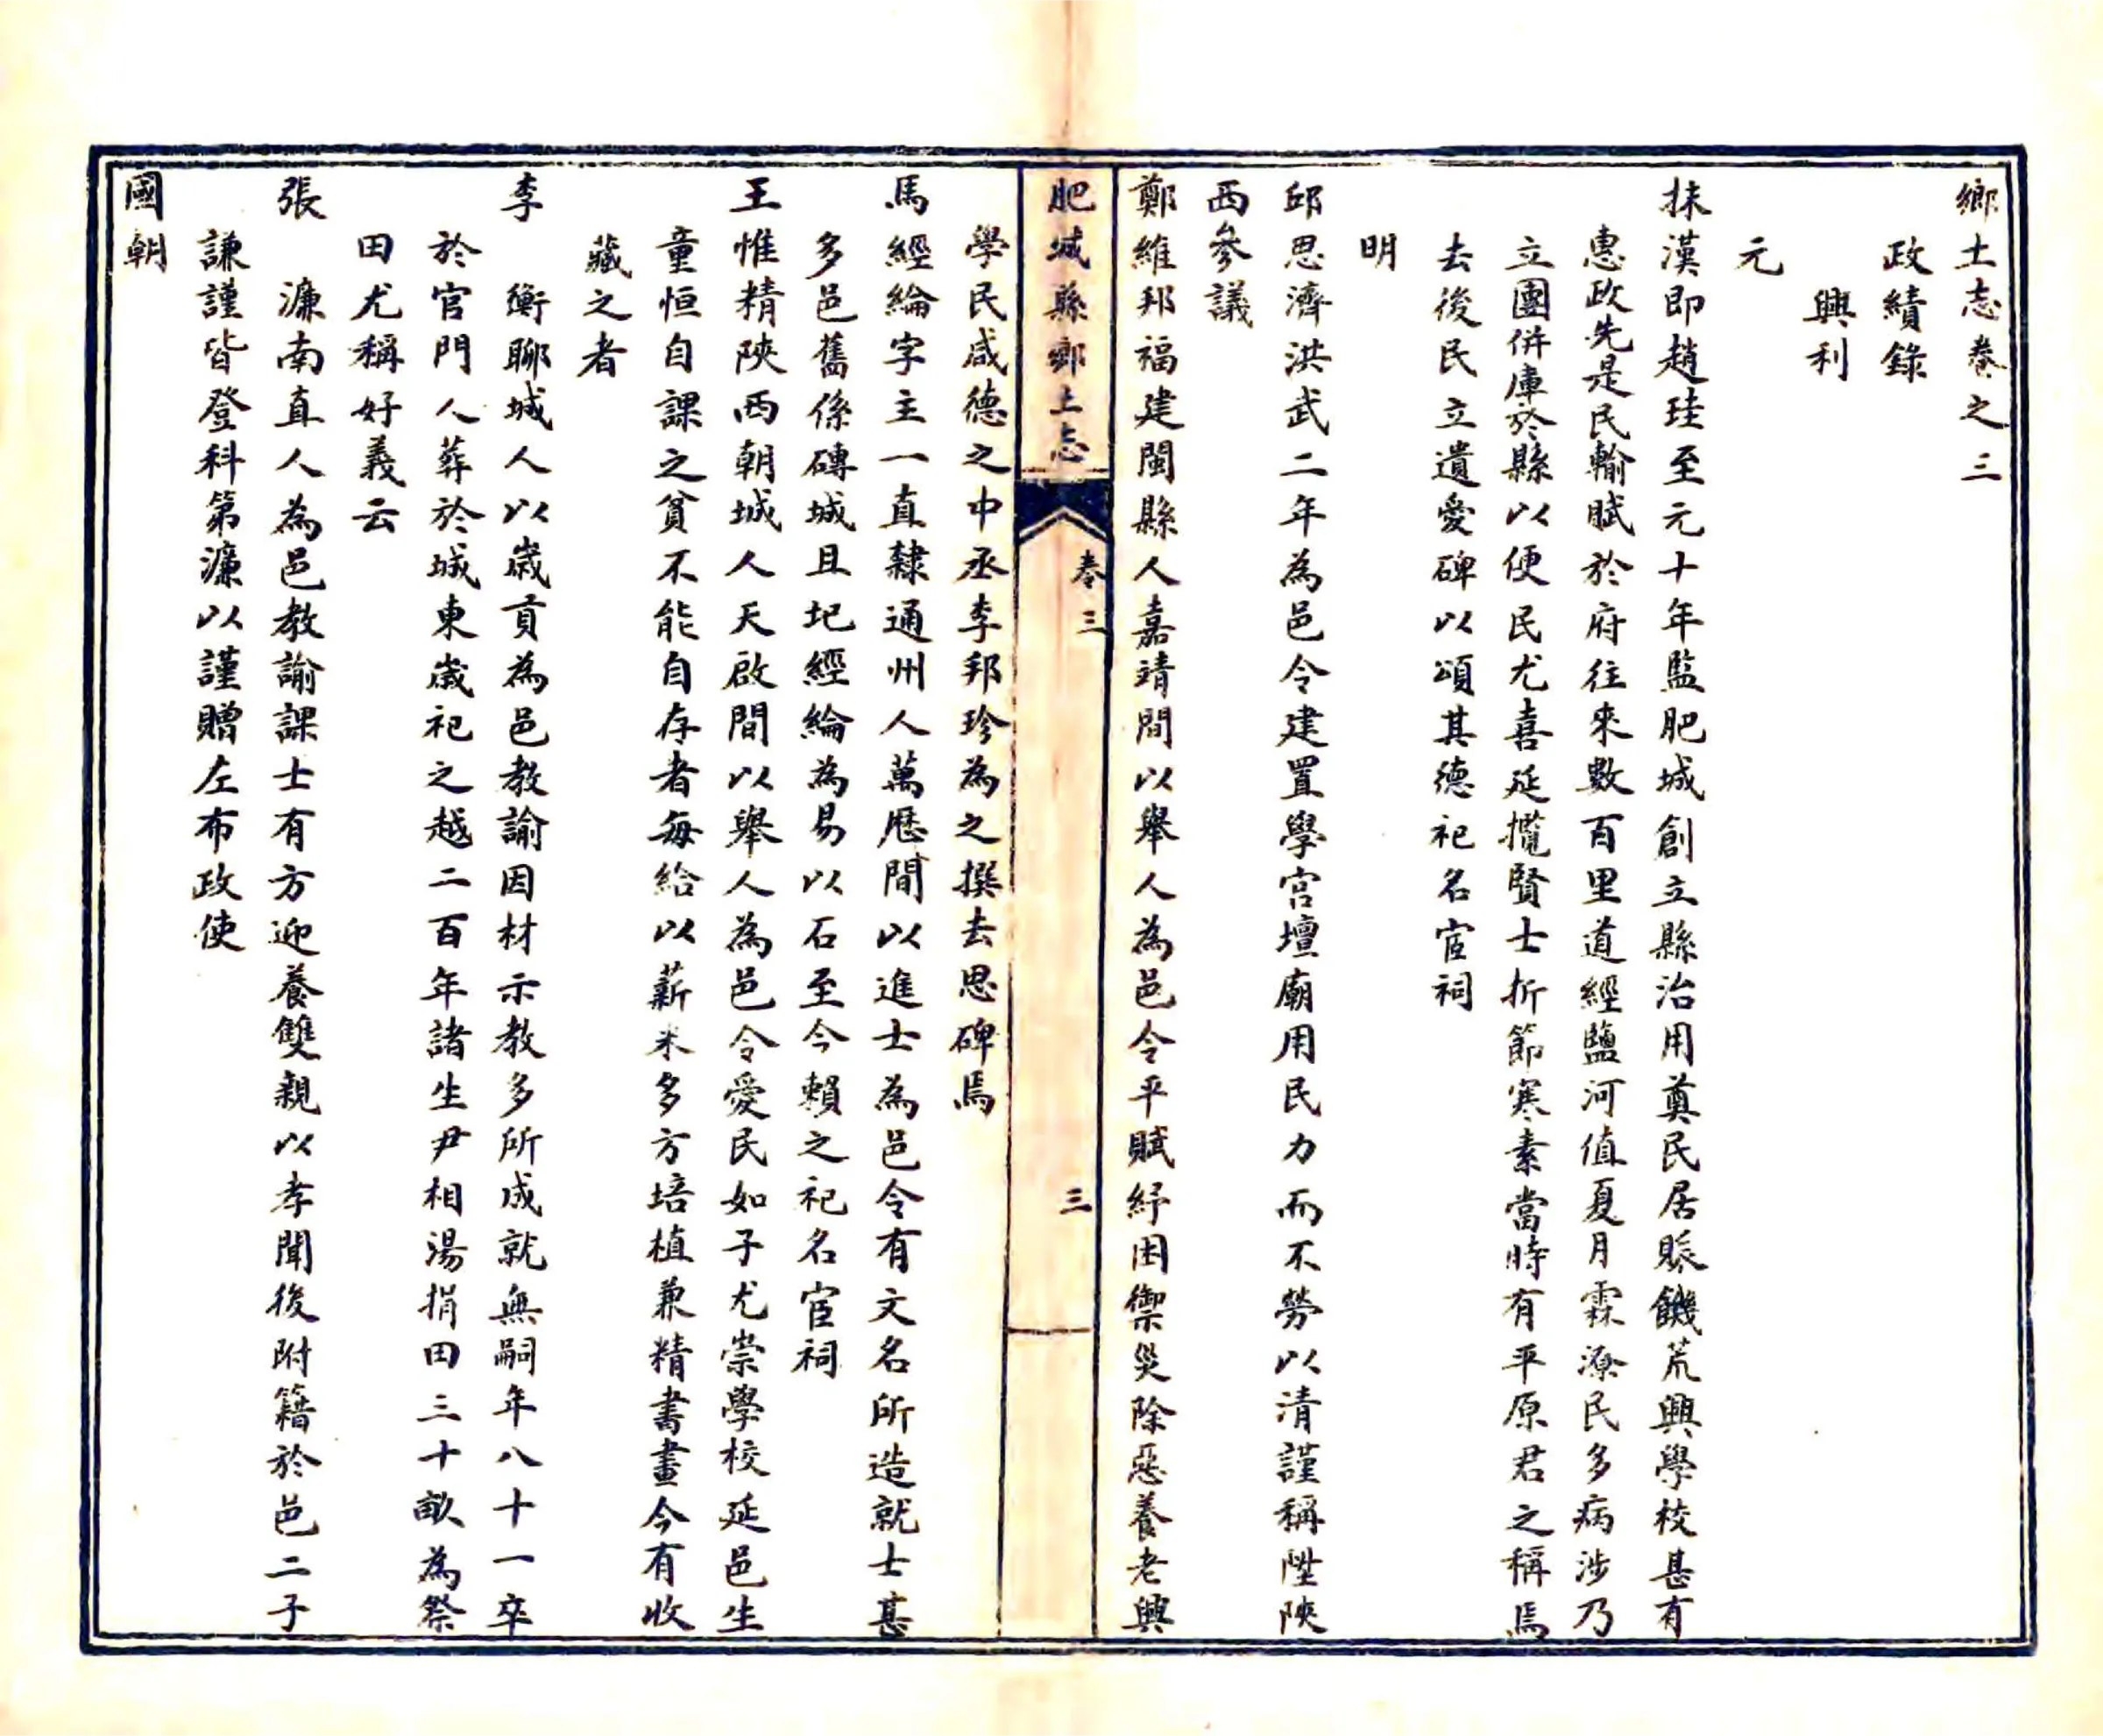 鄉土志卷之三
政績錄
興利
元
抹漢即趙珪至元十年監肥城創立縣治用奠民居賑饑荒興學校甚有
惠政先是民輸賦於府往來數百里道經鹽河值夏月霖潦民多病涉乃
立團併庫於縣以便民尤喜延攬賢士折節寒素當時有平原君之稱焉
去後民立遺愛碑以頌其德祀名宦祠
明
邱思濟洪武二年為邑令建置學宮壇廟用民力而不勞以清謹稱陞陝
西參議
鄭維邦福建閩縣人嘉靖間以舉人為邑令平賦紓困禦災除惡養老興
肥城縣鄉土志 卷三 三
學民咸德之中丞李邦珍為之撰去思碑焉
馬經綸字主一直隸通州人萬歷間以進士為邑令有文名所造就士甚
多邑舊係磚城且圮經綸為易以石至今賴之祀名宦祠
王惟精陝西朝城人天啟間以舉人為邑令愛民如子尤崇學校延邑生
童恒自課之貧不能自存者每給以薪米多方培植兼精書畫今有收
藏之者
李衡聊城人以歲貢為邑教諭因材示教多所成就無嗣年八十一卒
於官門人葬於城東歲祀之越二百年諸生尹相湯捐田三十畝為祭
田尤稱好義云
張濂南直人為邑教諭課士有方迎養雙親以孝聞後附籍於邑二子
謙謹皆登科第濂以謹贈左布政使
國朝